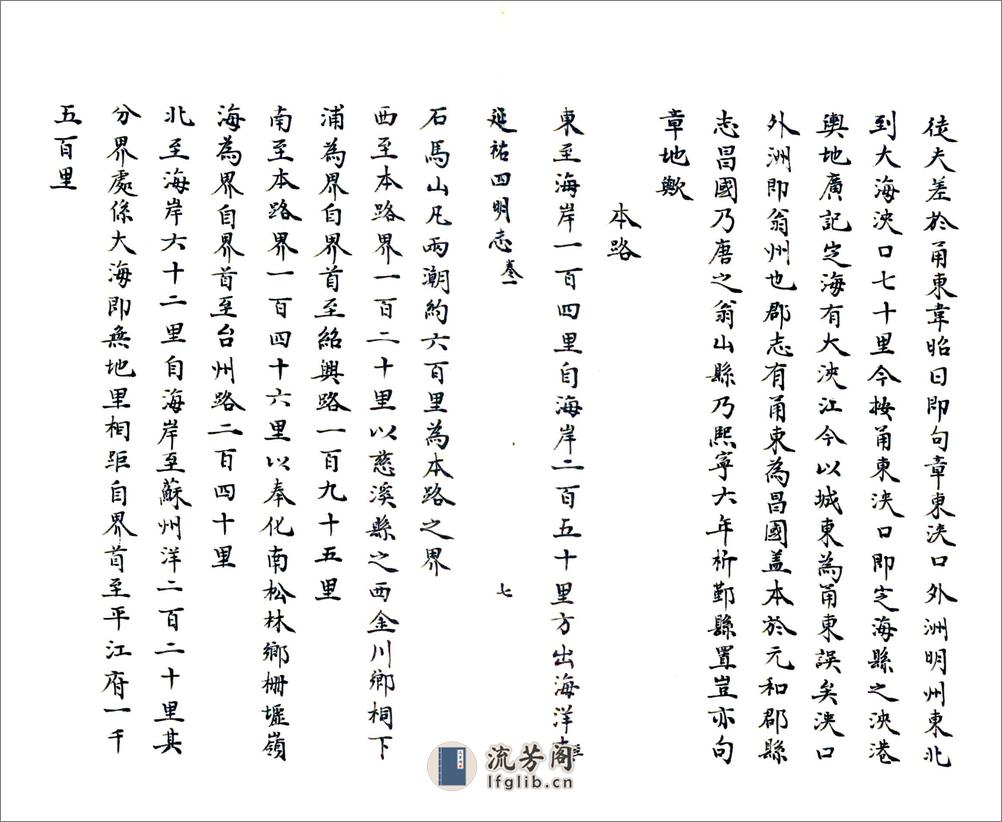 徒夫差於甬東韋昭曰即句章東浹口外洲明州東北
到大海浹口七十里今按甬東浹口即定海縣之浹港
輿地廣記定海有大浹江今以城東為甬東誤矣浹口
外洲即翁州也郡志有甬東為昌國盖本於元和郡縣
志昌國乃唐之翁山縣乃熙寧六年析鄞縣置豈亦句
章地歟
本路
東至海岸一百四里自海岸二百五十里方出海洋
延祐四明志 卷一
七
石馬山凡兩潮約六百里為本路之界
西至本路界一百二十里以慈溪縣之西金川鄉桐下
浦為界自界首至紹興路一百九十五里
南至本路界一百四十六里以奉化南松林鄉柵墟嶺
海為界自界首至台州路二百四十里
北至海岸六十二里自海岸至蘇州洋二百二十里其
分界處係大海即無地里相距自界首至平江府一千
五百里
流芳阁
lfglib.cn